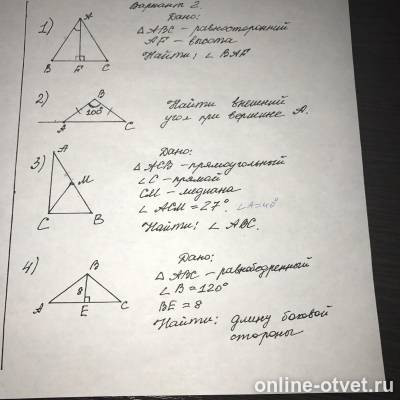 Вариант 2.
1)
Дано:
△ ABC - равносторонний
AF - высота
Найти: ∠ BAF
A
B F C
2)
Найти внешний
угол при вершине A.
B
100°
A C
3)
Дано:
△ ACB - прямоугольный
∠ C - прямой
CM - медиана
∠ ACM = 27°.
Найти: ∠ ABC.
A
M
C B
4)
Дано:
△ ABC - равнобедренный
∠ B = 120°
BE = 8
Найти: длину боковой
стороны
B
8
A E C
online-otvet.ru